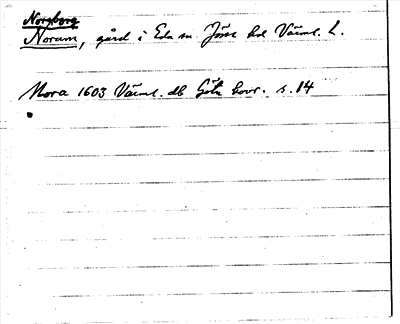 Norum, gård i Eda sn. Jösse hd Värml. L.
Mora 1603 Värml. db Göta hovr. s. 14